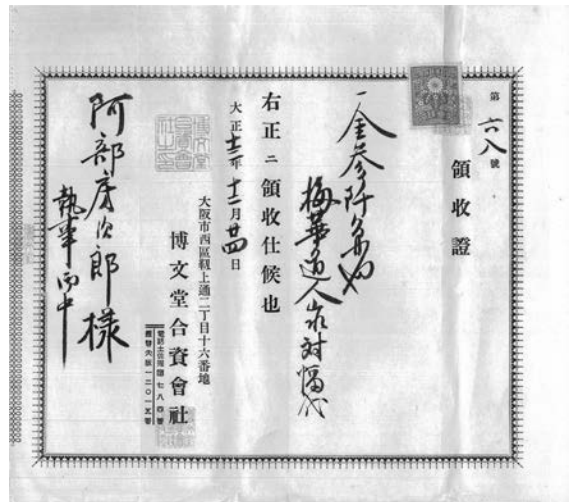 第六八號
領收證
一金參阡円也
梅華道人山水対幅代
右正ニ領收仕候也
大正十二年十二月廿四日
大阪市西區靱上通二丁目十六番地
博文堂合資會社
電話土佐堀七八四番
振替大阪一二〇一五番
博文堂
合資會
社之印
阿部房次郎様
執事御中